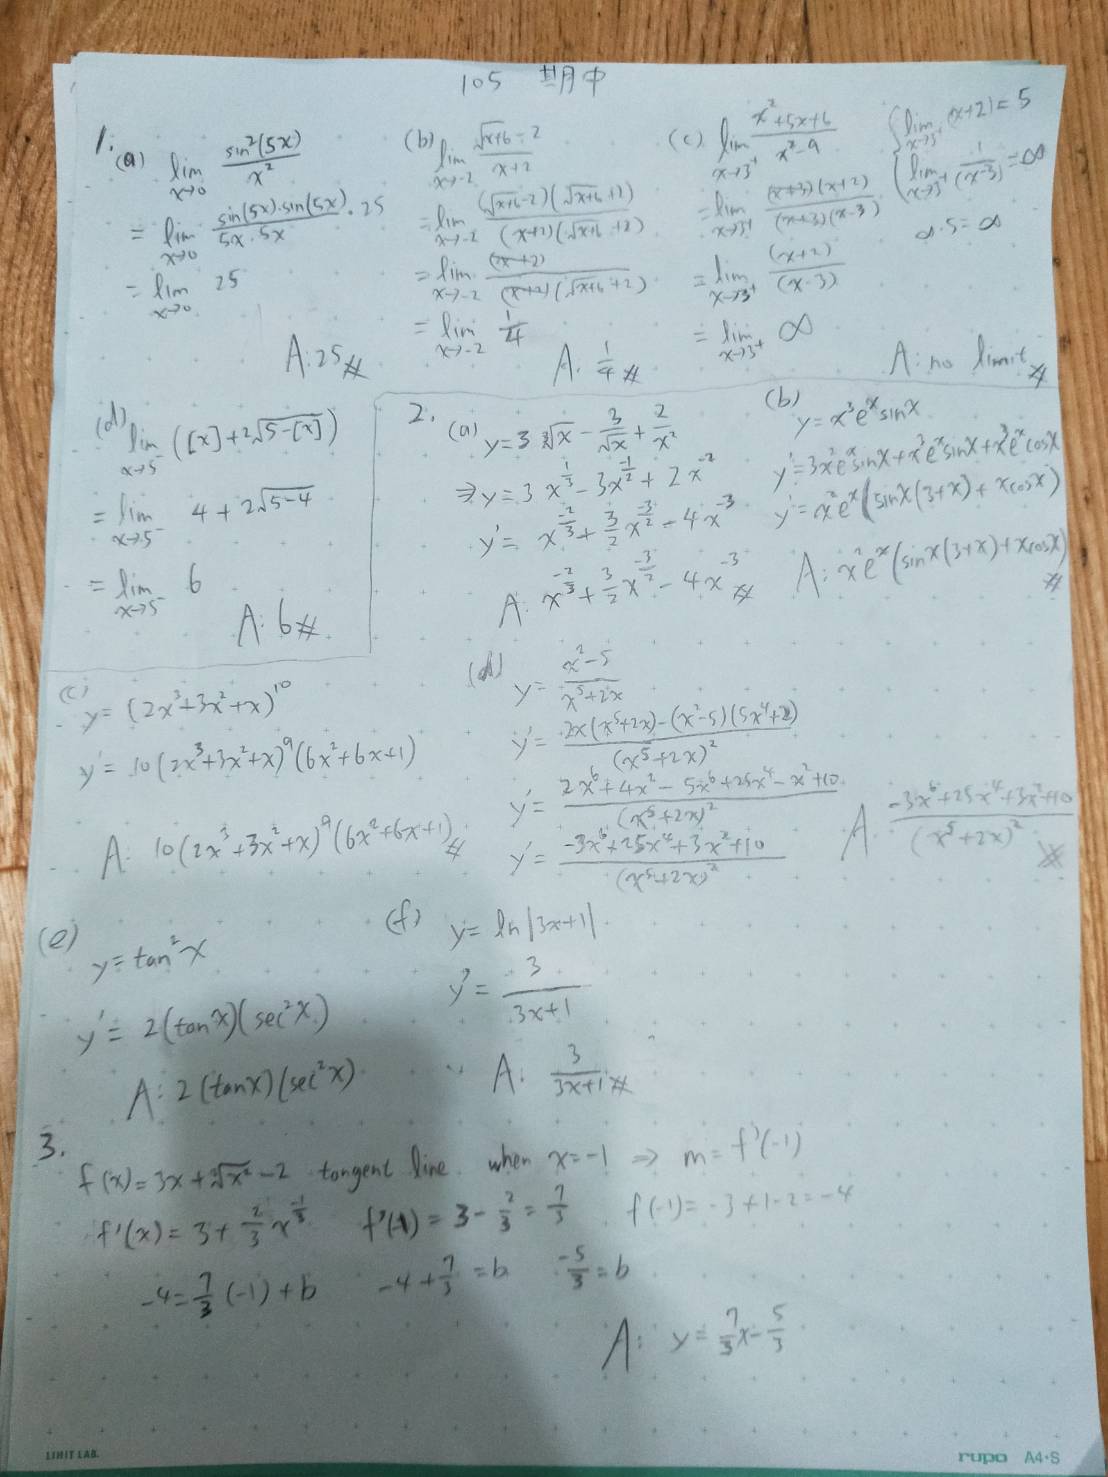 105 期中
1.
(a) lim x→0 sin²(5x) / x²
= lim x→0 sin(5x)·sin(5x) / 5x·5x · 25
= lim x→0 25
A: 25 #
(b) lim x→-2 √x+6 - 2 / x+2
= lim x→-2 (√x+6 - 2)(√x+6 + 2) / (x+2)(√x+6 + 2)
= lim x→-2 (x+2) / (x+2)(√x+6 + 2)
= lim x→-2 1/4
A: 1/4 #
(c) lim x→3⁺ x²+5x+6 / x²-9
= lim x→3⁺ (x+3)(x+2) / (x+3)(x-3)
= lim x→3⁺ (x+2) / (x-3)
= lim x→3⁺ ∞
{ lim x→3⁺ (x+2) = 5
lim x→3⁺ 1/(x-3) = ∞
∞·5 = ∞
A: no limit #
(d) lim x→5⁻ ([x] + 2√5-[x])
= lim x→5⁻ 4 + 2√5-4
= lim x→5⁻ 6
A: 6 #
2.
(a) y = 3 ³√x - 3/√x + 2/x²
⇒ y = 3x^(1/3) - 3x^(-1/2) + 2x^(-2)
y' = x^(-2/3) + 3/2 x^(-3/2) - 4x^(-3)
A: x^(-2/3) + 3/2 x^(-3/2) - 4x^(-3) #
(b) y = x³eˣsinx
y' = 3x²eˣsinx + x³eˣsinx + x³eˣcosx
y' = x²eˣ(sinx(3+x) + xcosx)
A: x²eˣ(sinx(3+x) + xcosx) #
(c) y = (2x³+3x²+x)¹⁰
y' = 10(2x³+3x²+x)⁹(6x²+6x+1)
A: 10(2x³+3x²+x)⁹(6x²+6x+1) #
(d) y = x²-5 / x⁵+2x
y' = 2x(x⁵+2x)-(x²-5)(5x⁴+2) / (x⁵+2x)²
y' = 2x⁶+4x²-5x⁶+25x⁴-x²+10 / (x⁵+2x)²
y' = -3x⁶+25x⁴+3x²+10 / (x⁵+2x)²
A: -3x⁶+25x⁴+3x²+10 / (x⁵+2x)² #
(e) y = tan²x
y' = 2(tanx)(sec²x)
A: 2(tanx)(sec²x)
(f) y = ln|3x+1|
y' = 3 / 3x+1
A: 3 / 3x+1 #
3.
f(x) = 3x + ³√x² - 2 tangent line when x=-1 ⇒ m = f'(-1)
f'(x) = 3 + 2/3 x^(-1/3) f'(-1) = 3 - 2/3 = 7/3 f(-1) = -3+1-2 = -4
-4 = 7/3 (-1) + b -4 + 7/3 = b -5/3 = b
A: y = 7/3 x - 5/3
LIHIT LAB.
rupo A4·S